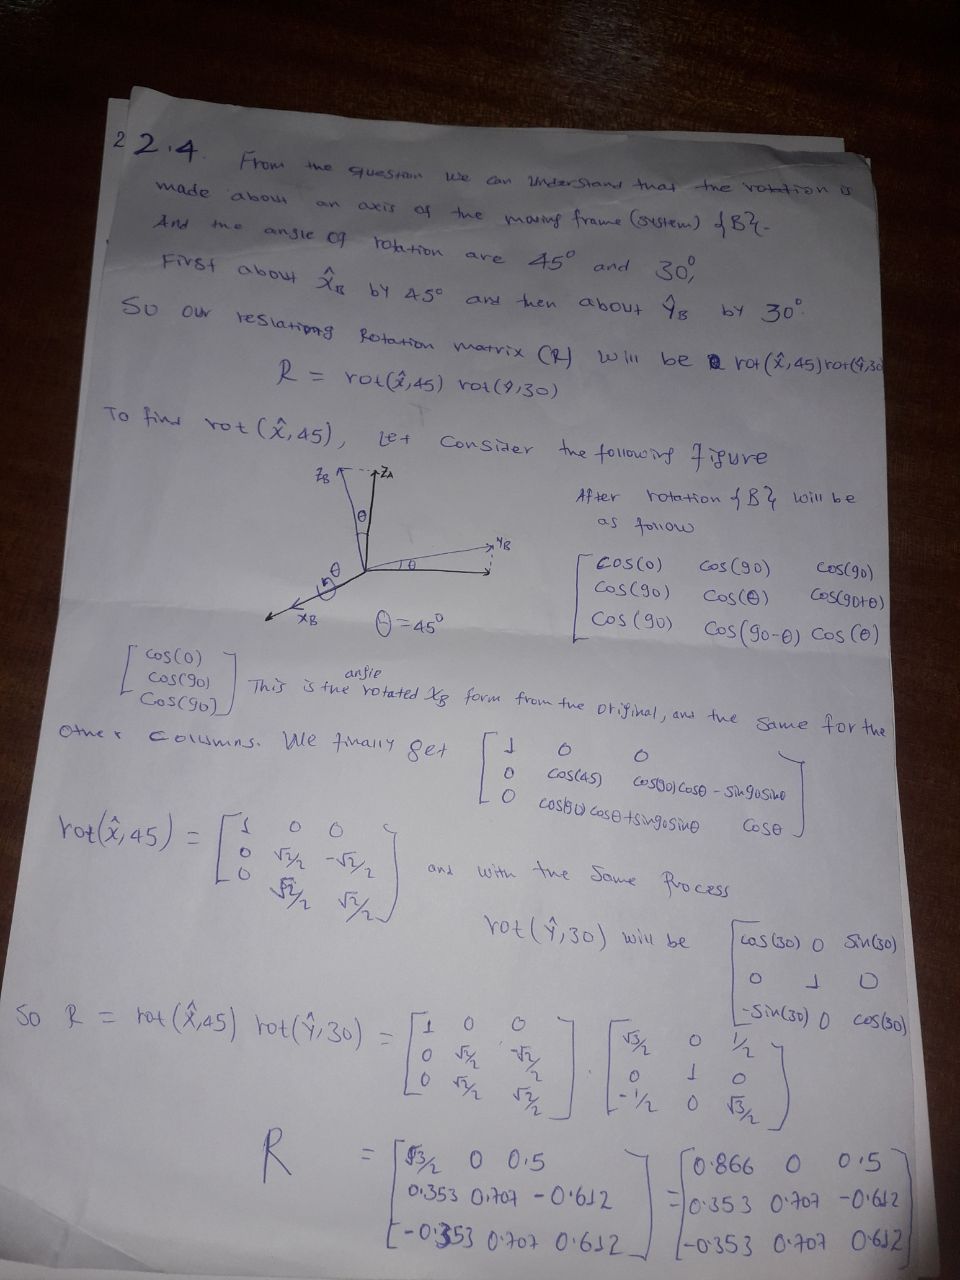 2 2.4. From the question we can understand that the rotation is
made about an axis of the moving frame (system) {B}.
And the angle of rotation are 45° and 30°,
First about X̂B by 45° and then about ŶB by 30°.
So our Rotation matrix (R) will be rot(x̂,45)rot(ŷ,30
R = rot(x̂,45) rot(ŷ,30)
To find rot(x̂,45), let consider the following figure
ZB ZA
θ
YB
θ
θ
XB
θ=45°
After rotation {B} will be
as follow
[cos(0) cos(90) cos(90)
cos(90) cos(θ) cos(90+θ)
cos(90) cos(90-θ) cos(θ)]
[cos(0)
cos(90)
cos(90)]
angle
This is the rotated XB form from the original, and the same for the
other columns. We finally get
[1 0 0
0 cos(45) cos(90)cosθ - sin90sinθ
0 cos(90)cosθ+sin90sinθ cosθ]
rot(x̂,45) = [1 0 0
0 √2/2 -√2/2
0 √2/2 √2/2]
and with the same process
rot(Ŷ,30) will be
[cos(30) 0 sin(30)
0 1 0
-sin(30) 0 cos(30)]
So R = rot(X̂,45) rot(Ŷ,30) = [1 0 0
0 √2/2 -√2/2
0 √2/2 √2/2] . [√3/2 0 1/2
0 1 0
-1/2 0 √3/2]
R = [√3/2 0 0.5
0.353 0.707 -0.612
-0.353 0.707 0.612]
= [0.866 0 0.5
0.353 0.707 -0.612
-0.353 0.707 0.612]